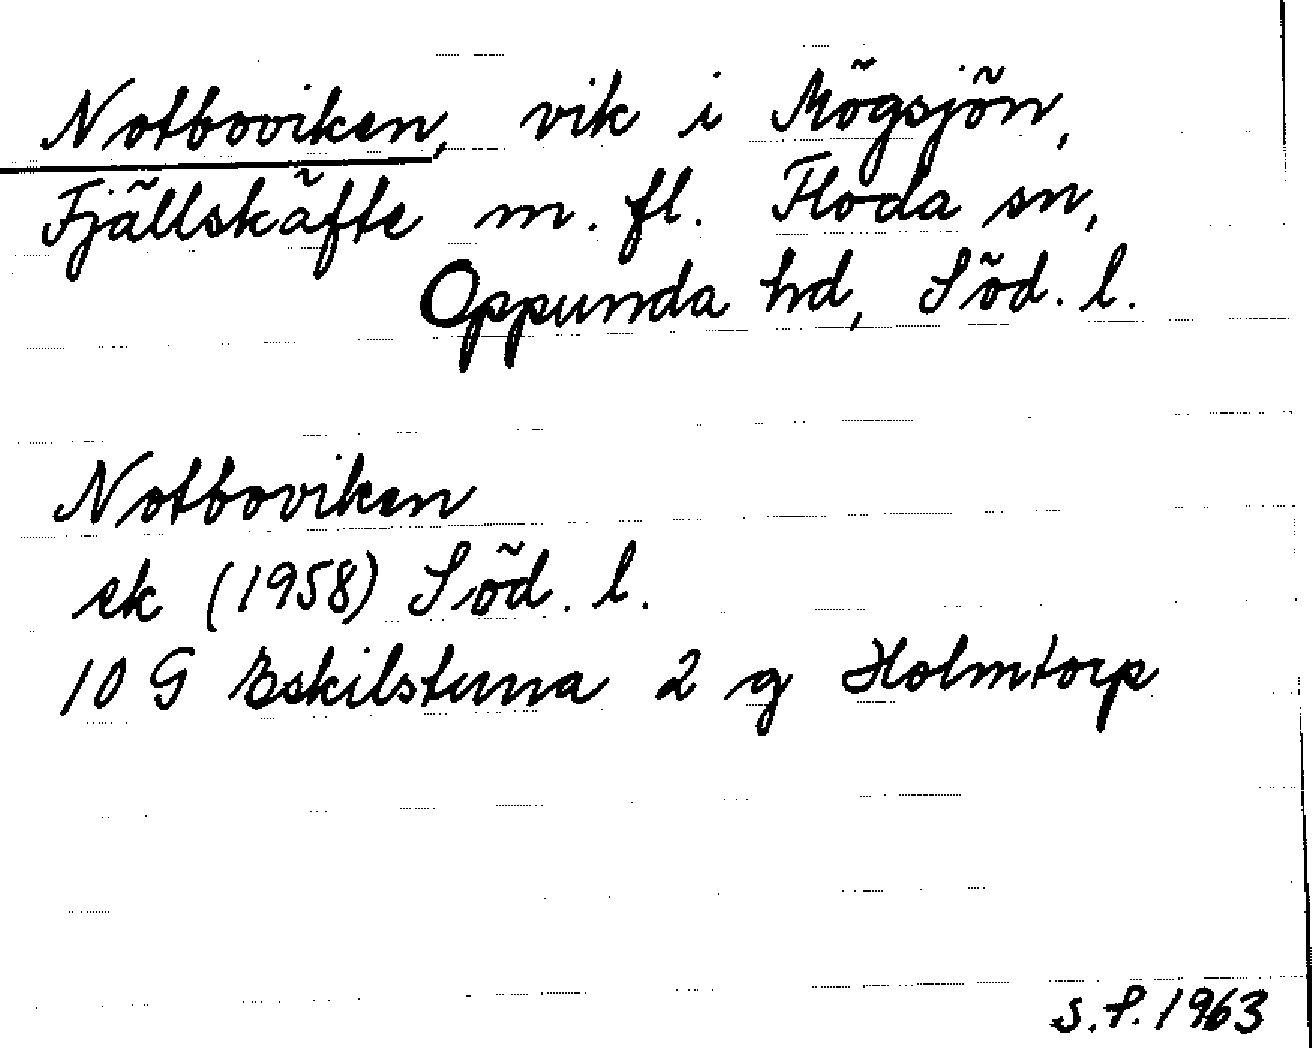 Notboviken, vik i Mögsjön,
Fjällskäfte m. fl. Floda sn,
Oppunda hd, Söd. l.
Notboviken
ek (1958) Söd. l.
10 G Eskilstuna 2 g Holmtorp
S.P. 1963